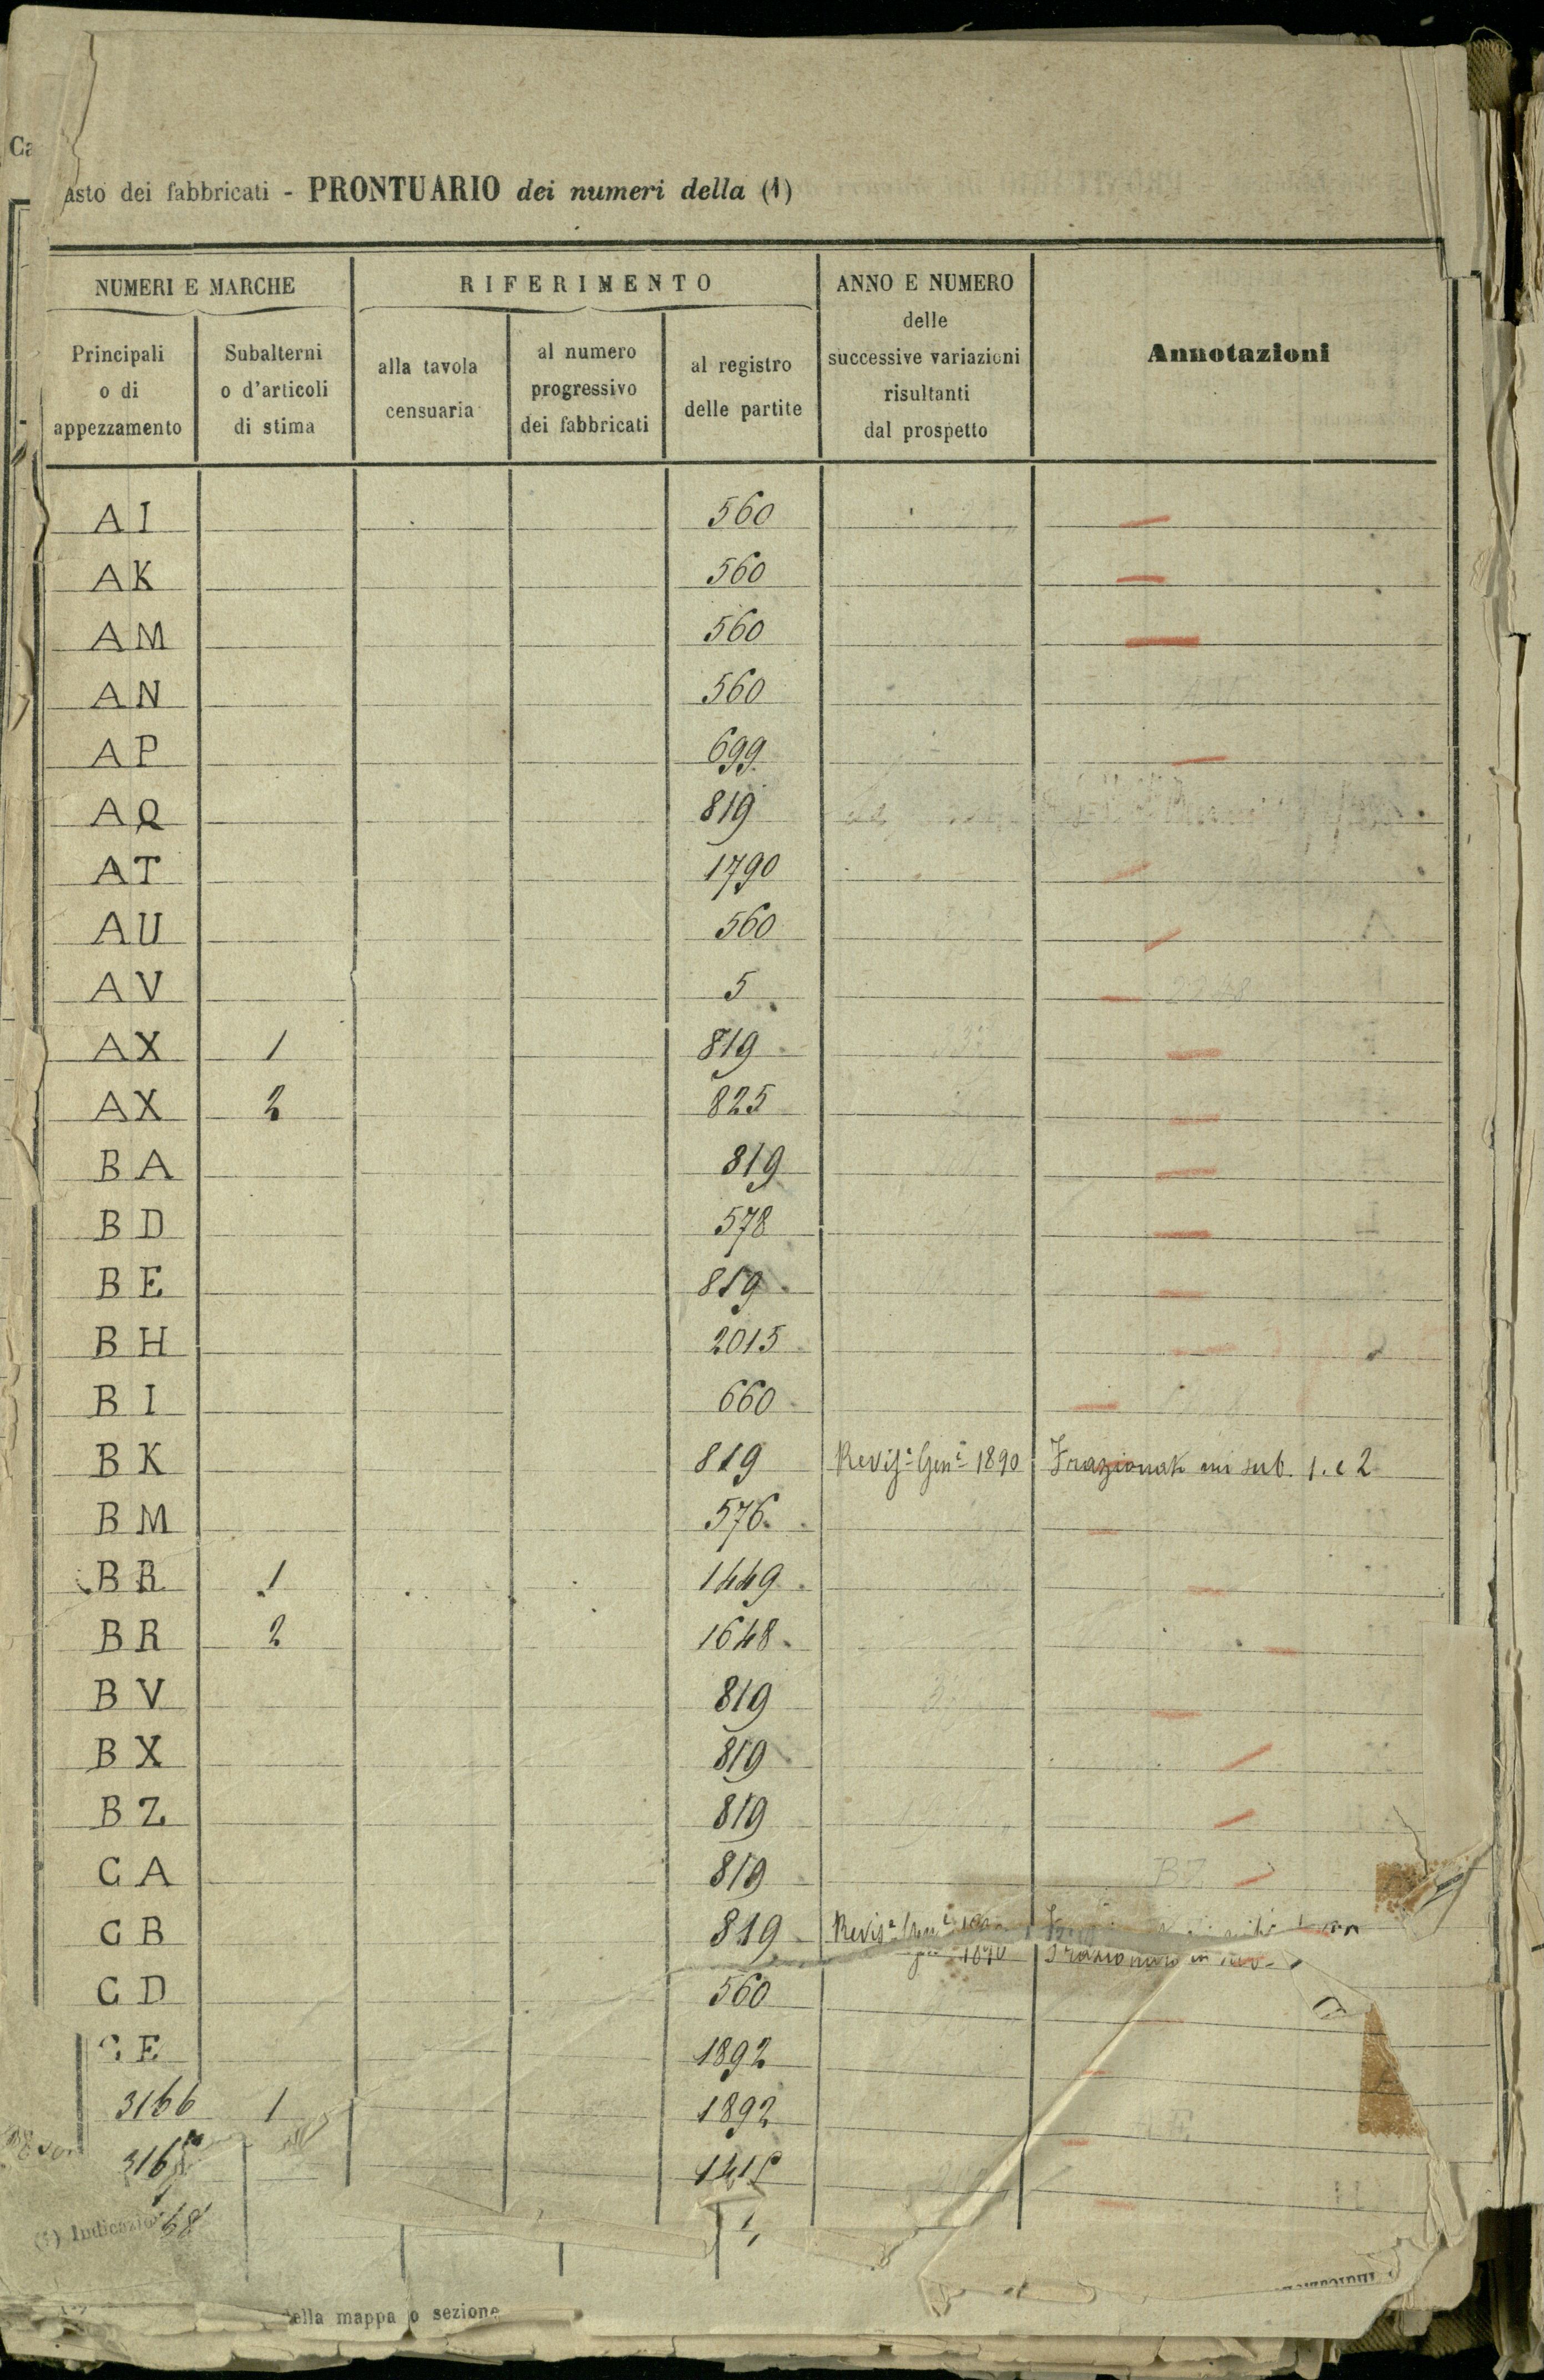 Ca
asto dei fabbricati - PRONTUARIO dei numeri della (1)
NUMERI E MARCHE
RIFERIMENTO
ANNO E NUMERO
delle
successive variazioni
risultanti
dal prospetto
Annotazioni
Principali
o di
appezzamento
Subalterni
o d'articoli
di stima
alla tavola
censuaria
al numero
progressivo
dei fabbricati
al registro
delle partite
AI 560
AK 560
AM 560
AN 560
AP 699
AQ 819
AT 1790
AU 560
AV 5
AX 1 819
AX 2 825
BA 819
BD 578
BE 819
BH 2015
BI 660
BK 819 Revis.e Gen.e 1890 Frazionato nei sub. 1. e 2
BM 576
BR 1 1449
BR 2 1648
BV 819
BX 819
BZ 819
CA 819
CB 819 Revis.e
CD 560
CE 1892
3166 1 1892
316
68
(1) Indicazione
della mappa o sezione